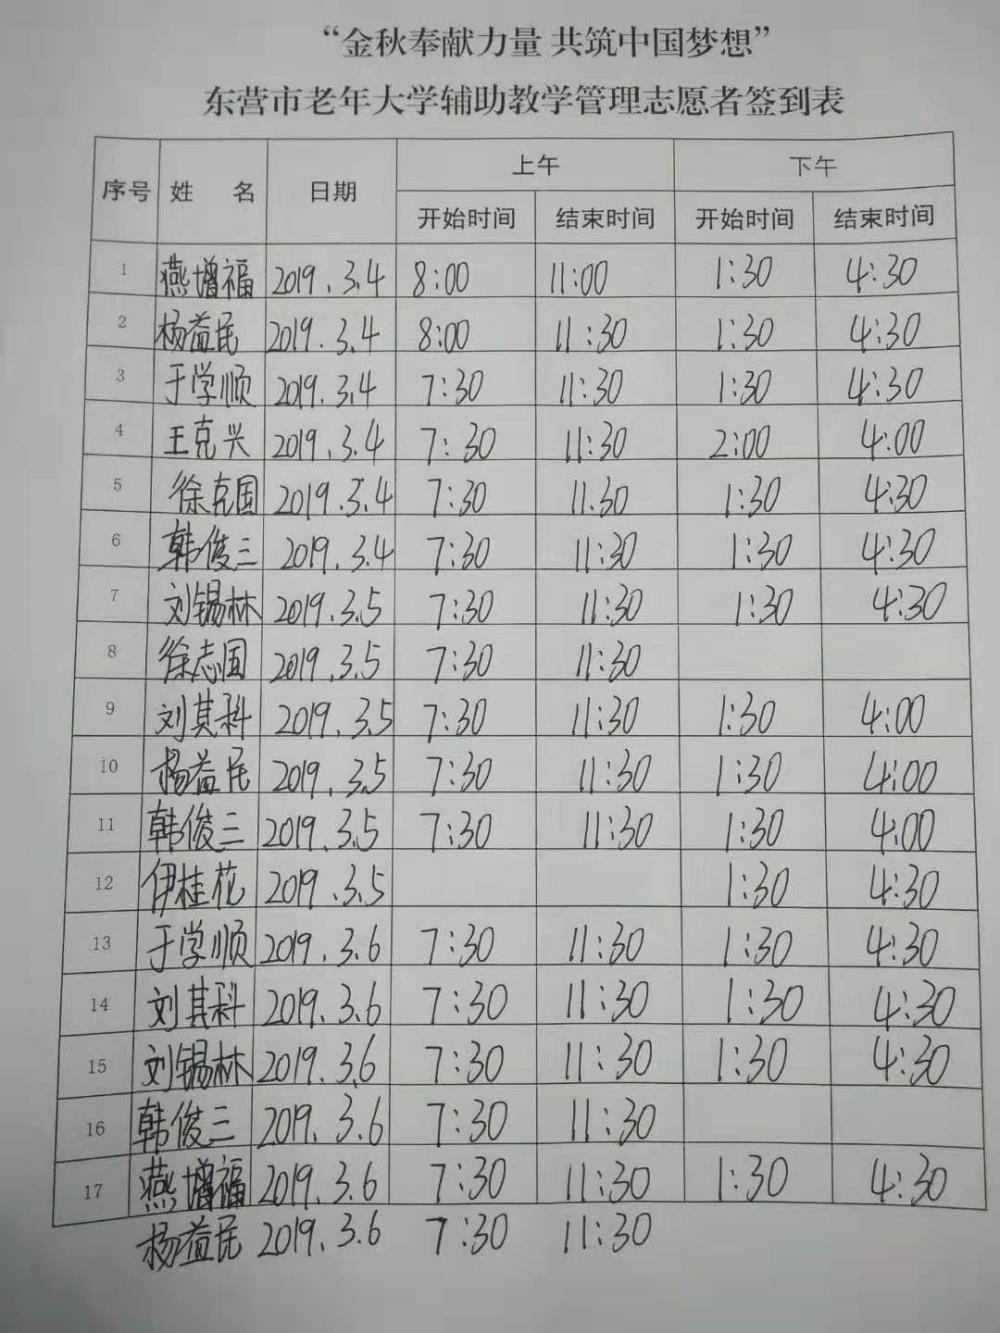 “金秋奉献力量 共筑中国梦想”
东营市老年大学辅助教学管理志愿者签到表
序号 姓 名 日期 上午 下午
开始时间 结束时间 开始时间 结束时间
1 燕增福 2019.3.4 8:00 11:00 1:30 4:30
2 杨益民 2019.3.4 8:00 11:30 1:30 4:30
3 于学顺 2019.3.4 7:30 11:30 1:30 4:30
4 王克兴 2019.3.4 7:30 11:30 2:00 4:00
5 徐克国 2019.3.4 7:30 11.30 1:30 4:30
6 韩俊三 2019.3.4 7:30 11:30 1:30 4:30
7 刘锡林 2019.3.5 7:30 11:30 1:30 4:30
8 徐志国 2019.3.5 7:30 11:30
9 刘其科 2019.3.5 7:30 11:30 1:30 4:00
10 杨益民 2019.3.5 7:30 11:30 1:30 4:00
11 韩俊三 2019.3.5 7:30 11:30 1:30 4:00
12 伊桂花 2019.3.5 1:30 4:30
13 于学顺 2019.3.6 7:30 11:30 1:30 4:30
14 刘其科 2019.3.6 7:30 11:30 1:30 4:30
15 刘锡林 2019.3.6 7:30 11:30 1:30 4:30
16 韩俊三 2019.3.6 7:30 11:30
17 燕增福 2019.3.6 7:30 11:30 1:30 4:30
杨益民 2019.3.6 7:30 11:30